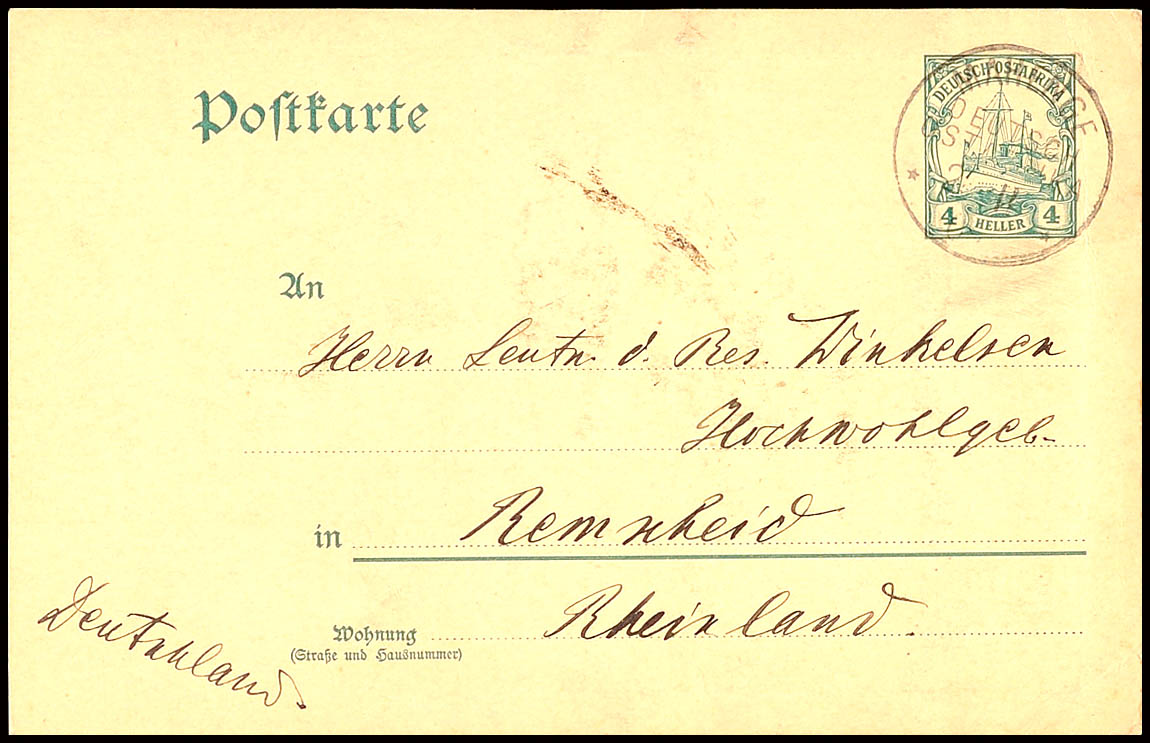 Postkarte
DEUTSCH-OSTAFRIKA
4 HELLER 4
An
Herrn Leutn. d. Res. Winkelsen
Hochwohlgeb.
in Remscheid
Wohnung Rheinland.
(Straße und Hausnummer)
Deutschland.